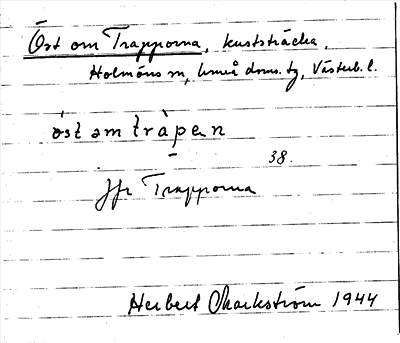 Öst om Trapporna, kuststräcka,
Holmöns sn, Umeå doms. tg, Västerb. l.
öst om tràpen
38.
Jfr Trapporna
Herbert Markström 1944